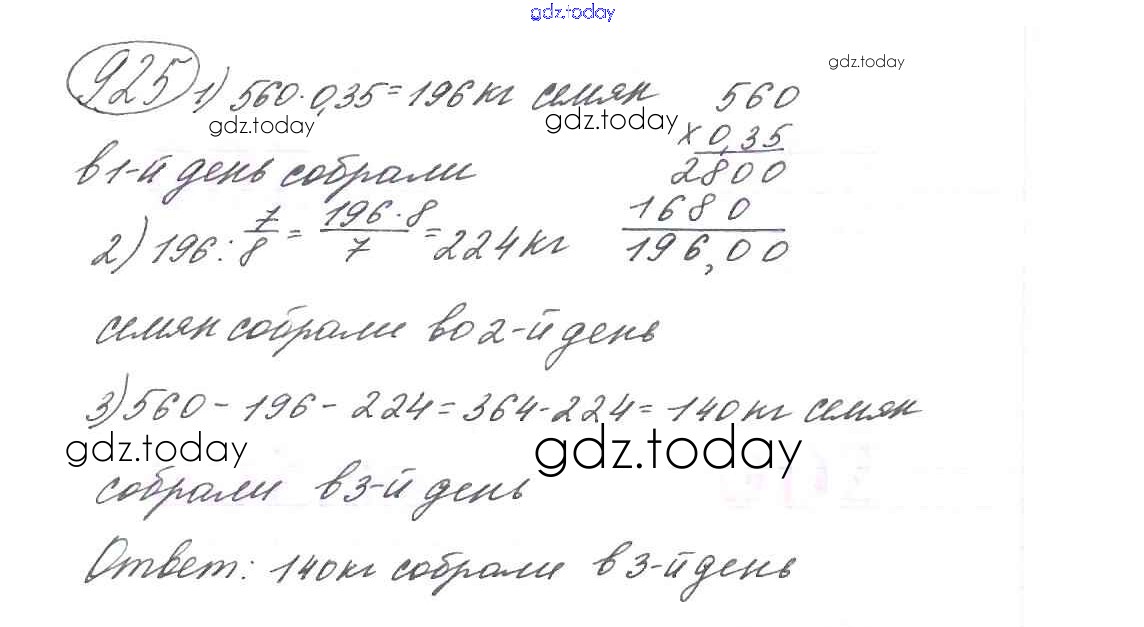 gdz.today
gdz.today
925 1) 560·0,35=196кг семян
gdz.today
gdz.today
в 1-й день собрали
560
× 0,35
2800
1680
196,00
2) 196: 7/8 = 196·8/7 = 224кг
семян собрали во 2-й день
3) 560-196-224=364-224=140кг семян
gdz.today
gdz.today
собрали в 3-й день
Ответ: 140кг собрали в 3-й день